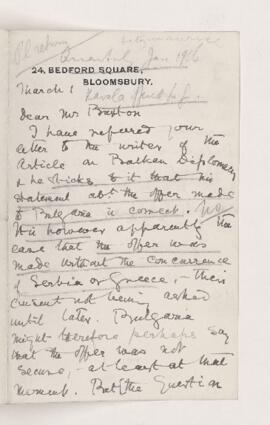 Pl return
Quarterly Jan 1916
24, BEDFORD SQUARE,
BLOOMSBURY.
March 1
Kavala
Dear Mr Buxton
I have referred your
letter to the writer of the
Article on Balkan Diplomacy
& he sticks to it that his
statement abt. the offer made
to Bulgaria is correct. No
It is however apparently the
case that the offer was
made without the concurrence
of Serbia or Greece, - their
consent not being asked
until later. Bulgaria
might therefore perhaps say
that the offer was not
secure, - at least at that
moment. But (the question